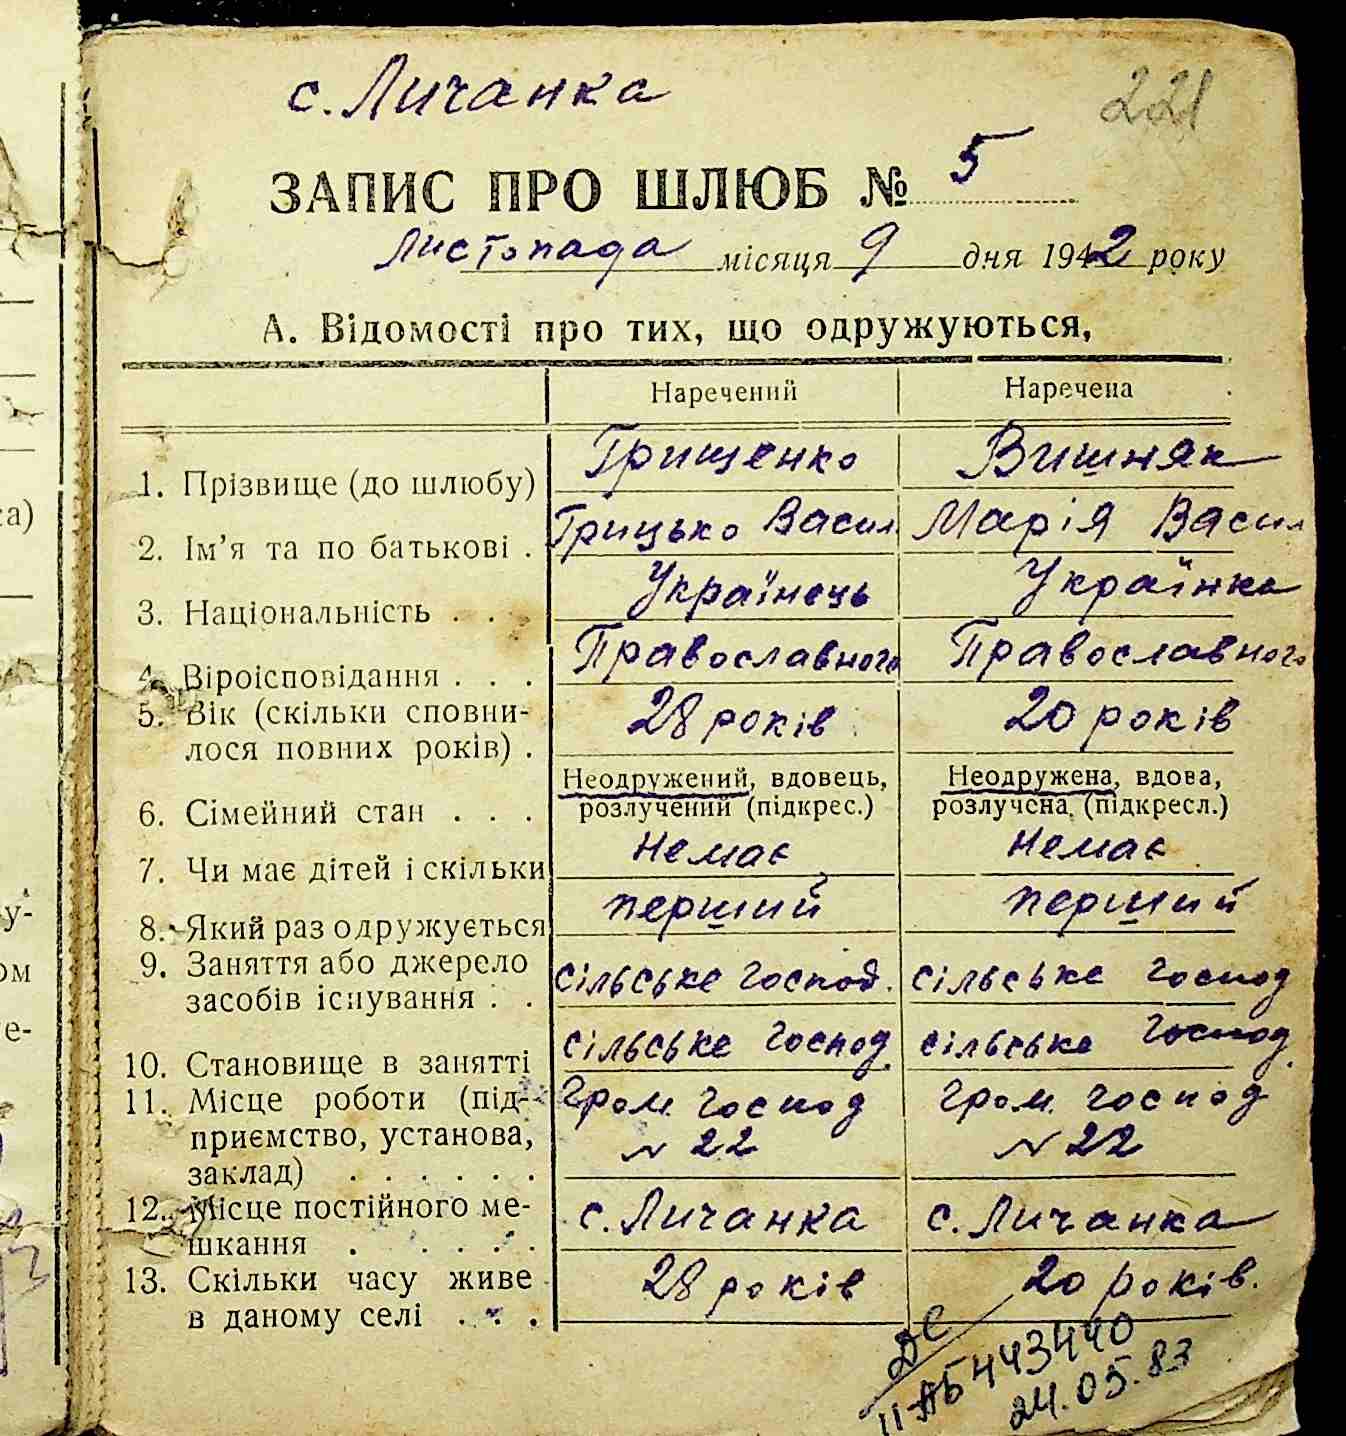 с. Личанка
221
ЗАПИС ПРО ШЛЮБ № 5
Листопада місяця 9 дня 1942 року
А. Відомості про тих, що одружуються,
Наречений Наречена
1. Прізвище (до шлюбу) Грищенко Вишняк
2. Ім’я та по батькові . Грицько Васил Марія Васил
3. Національність . . . Українець Українка
4. Віроісповідання . . . Православного Православного
5. Вік (скільки сповни-
лося повних років) . 28 років 20 років
Неодружений, вдовець, Неодружена, вдова,
6. Сімейний стан . . . розлучений (підкрес.) розлучена (підкресл.)
7. Чи має дітей і скільки немає немає
8. Який раз одружується перший перший
9. Заняття або джерело
засобів існування . . сільське господ. сільське господ
10. Становище в занятті сільське господ. сільське господ.
11. Місце роботи (під- Гром. господ гром. господ
приємство, установа, № 22 № 22
заклад) . . . . . .
12. Місце постійного ме- с. Личанка с. Личанка
шкання . . . . .
13. Скільки часу живе 28 років 20 років.
в даному селі . . .
ДС
II-АБ 443440
24.05.83
са)
у-
ом
е-